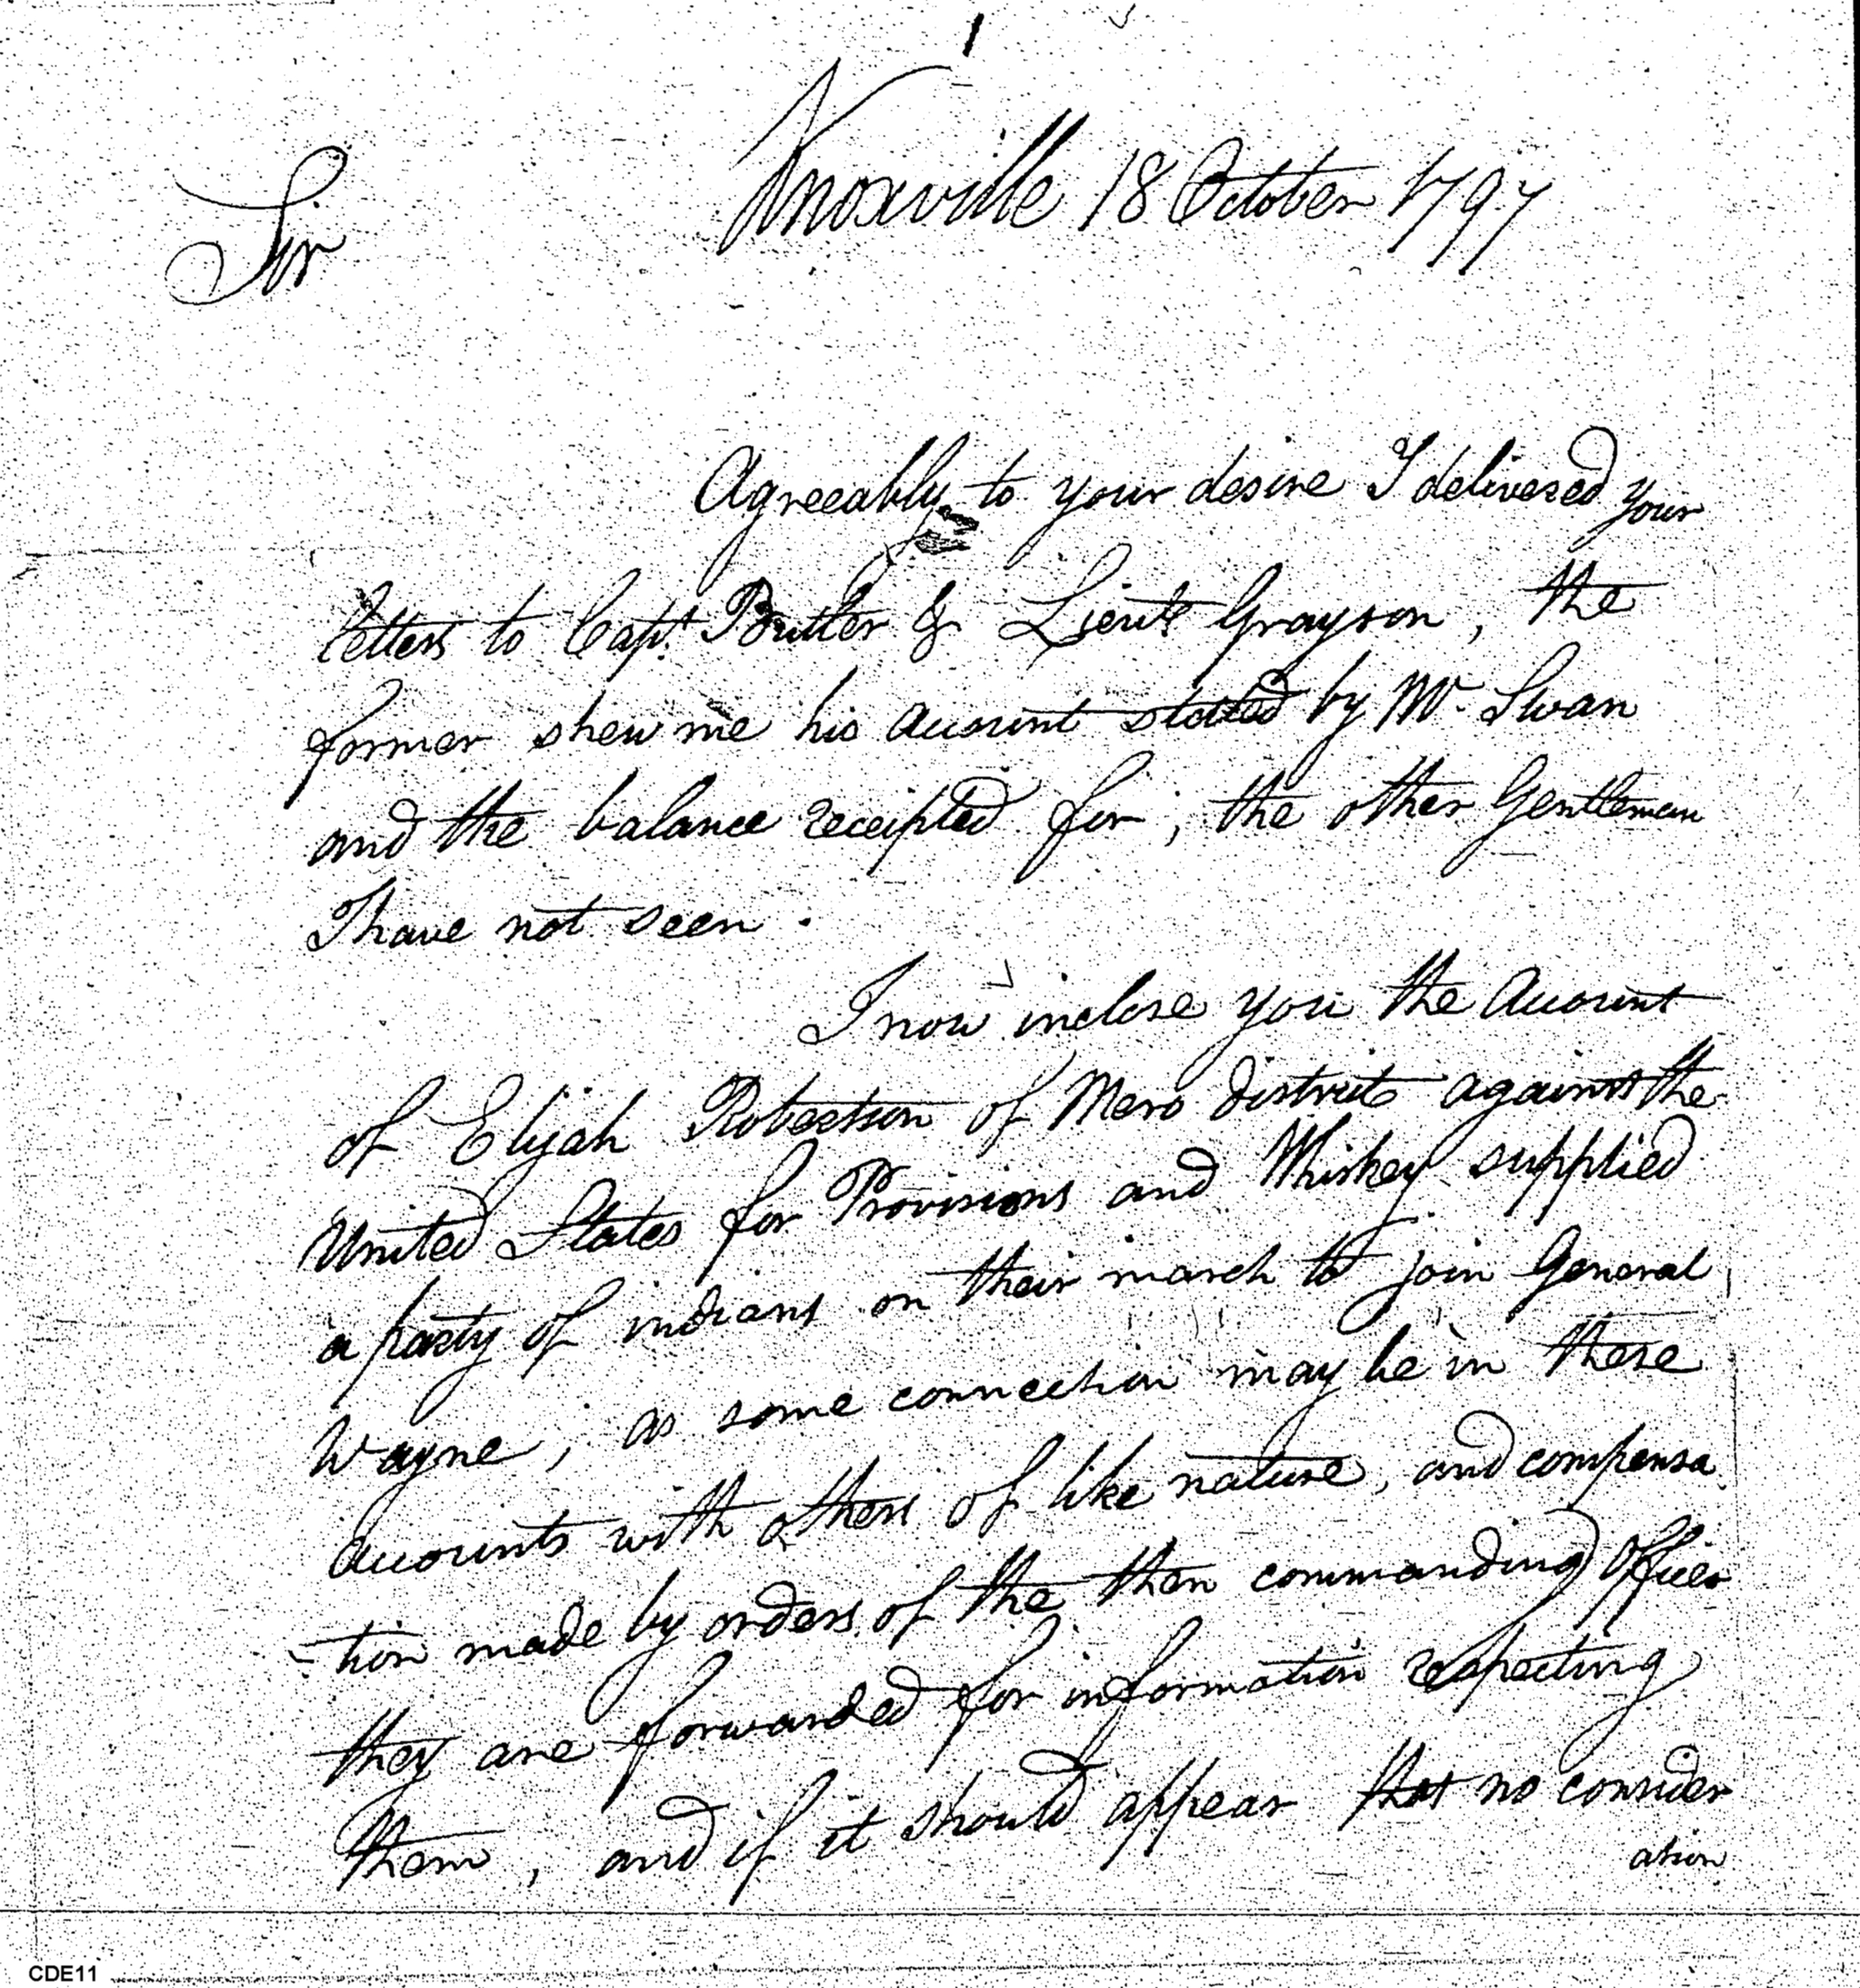 1
Knoxville 18 October 1797
Sir
Agreeably to your desire I delivered your
letters to Capt. Butler & Lieut Grayson, the
former shew me his account stated by Mr. Swan
and the balance receipted for, the other Gentleman
I have not seen.
I now inclose you the Account
of Elijah Robertson of Mero district against the
United States for Provisions and Whiskey supplied
a party of indians on their march to join General
Wayne, as some connection may be in these
accounts with others of like nature, and compensa
-tion made by orders of the then commanding Officer
they are forwarded for information respecting
them, and if it should appear that no consider
ation
CDE11